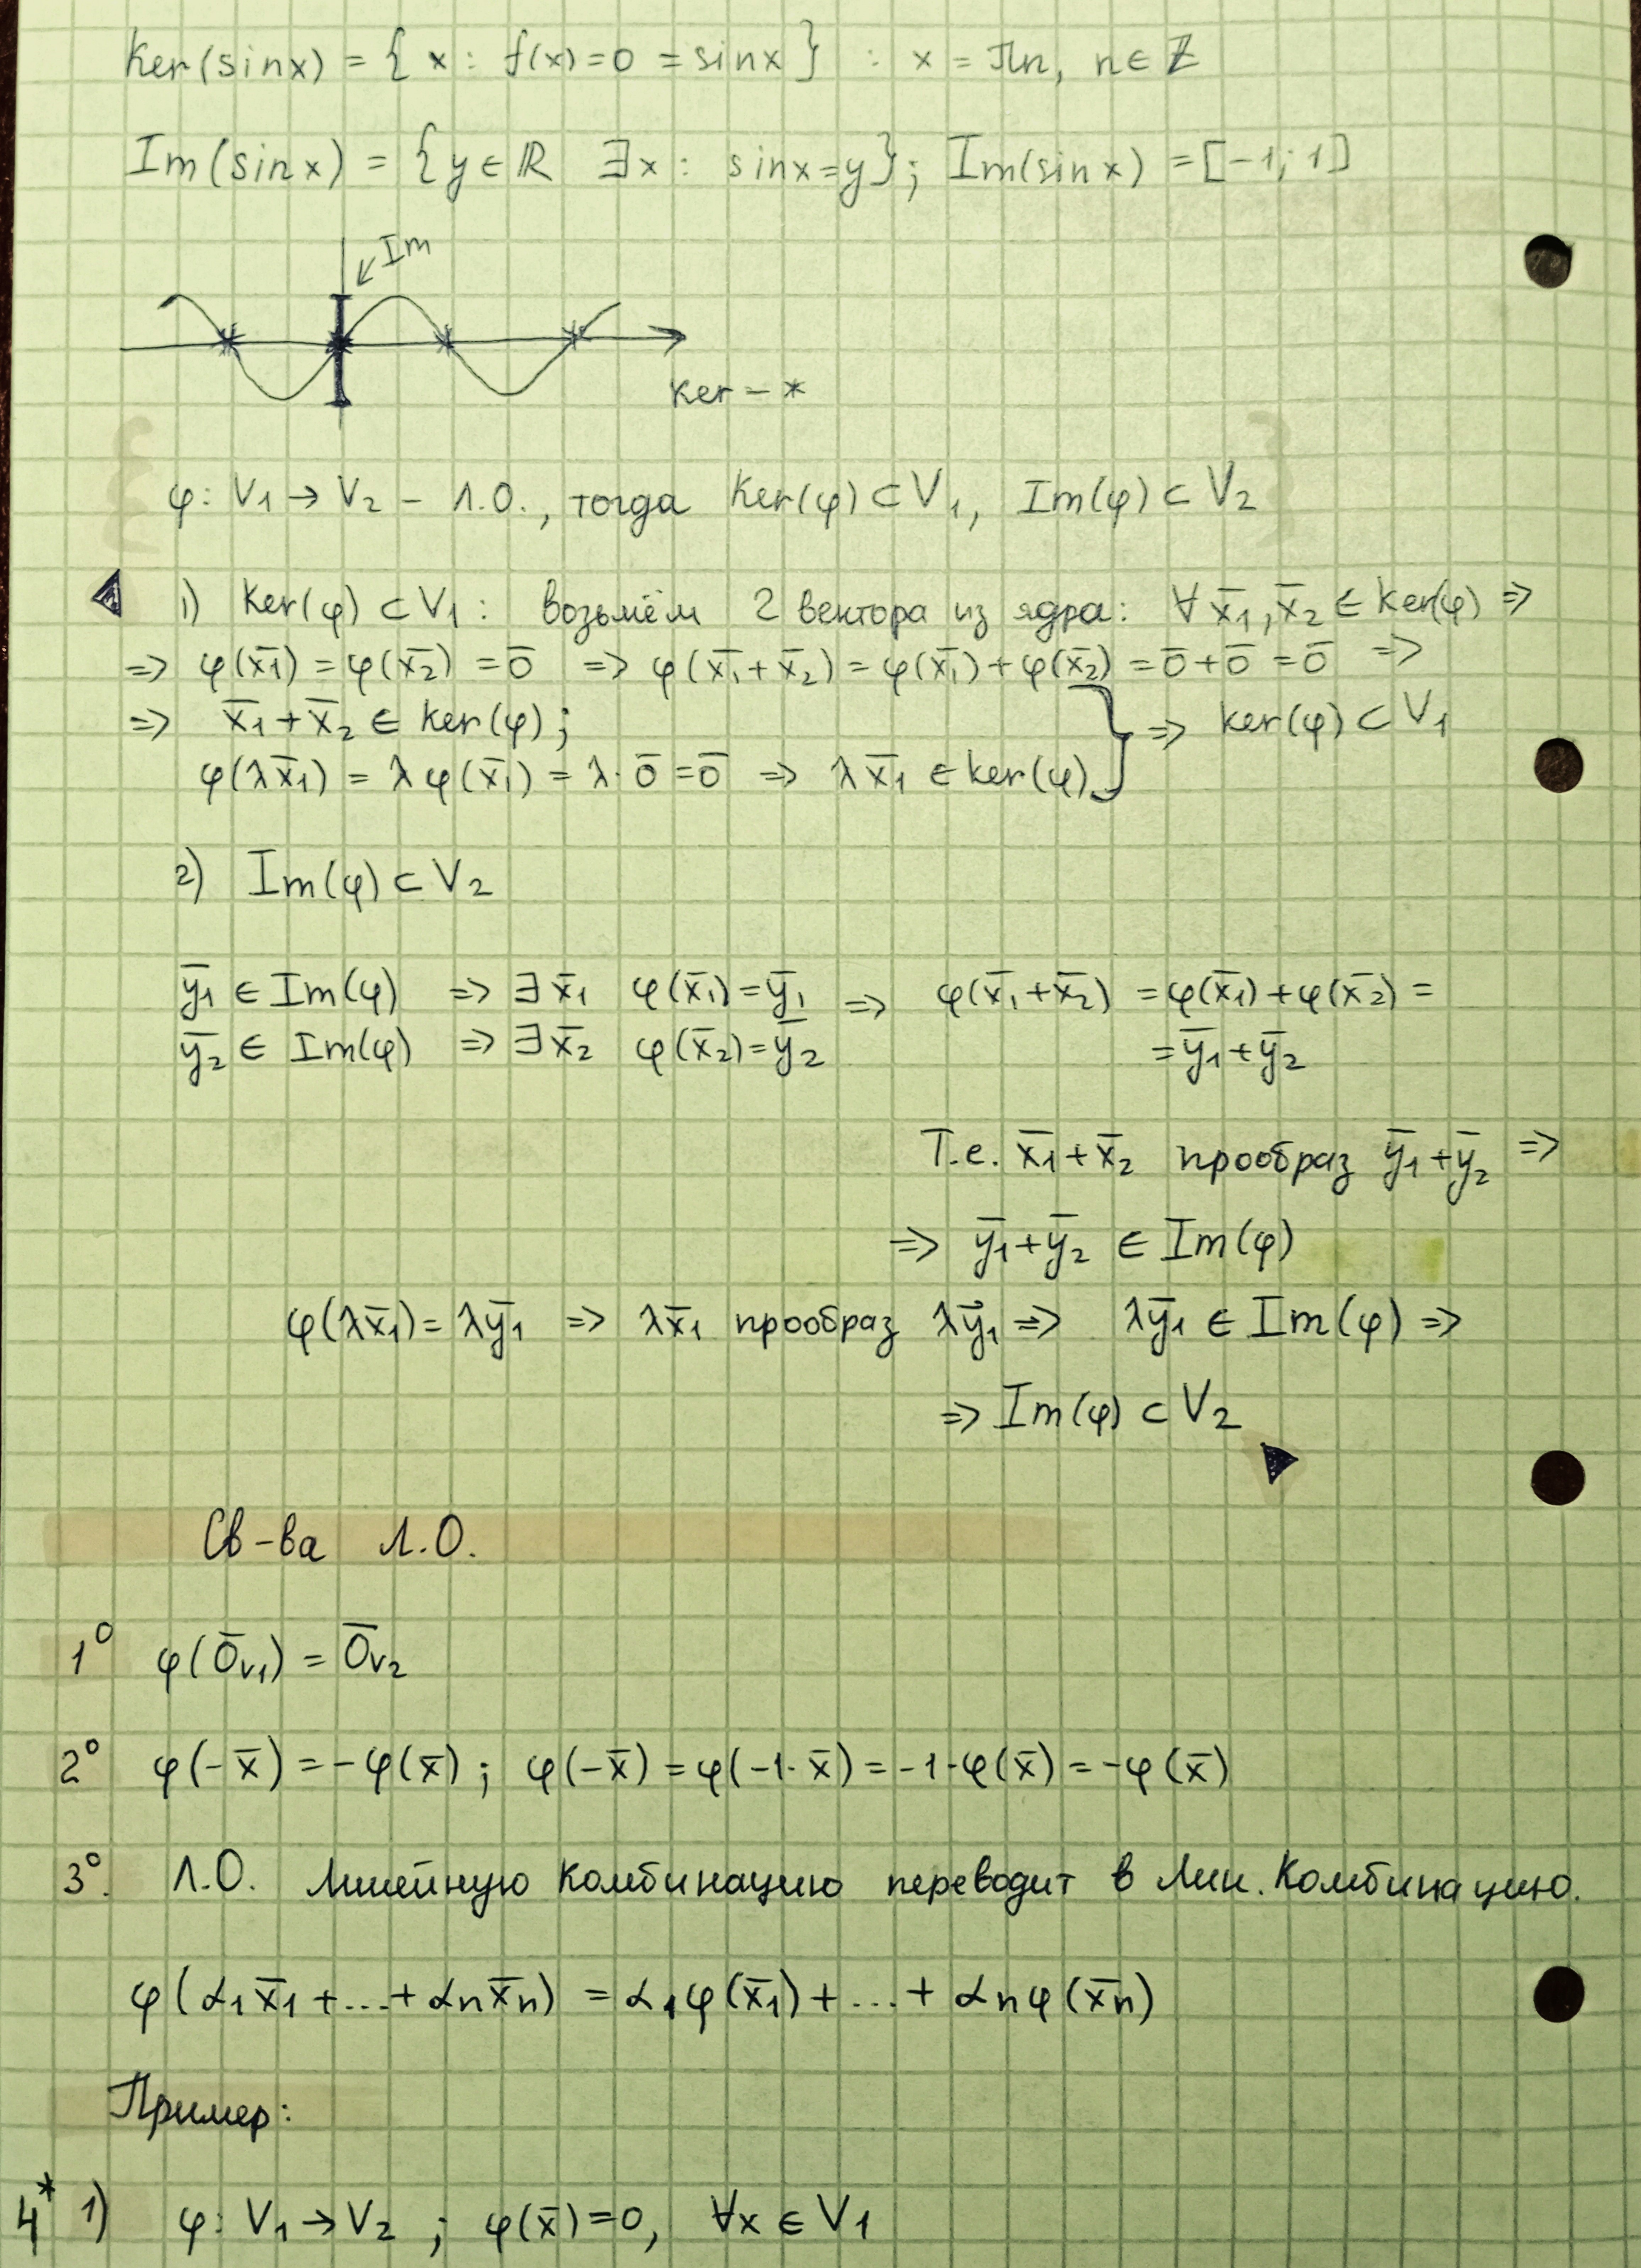 Ker(sinx) = { x : f(x)=0 = sinx } : x = πn, n ∈ Z
Im(sinx) = {y ∈ ℝ ∃x : sinx=y}; Im(sinx) = [-1; 1]
Im
Ker – *
φ: V₁ → V₂ – Л.О., тогда Ker(φ) ⊂ V₁, Im(φ) ⊂ V₂
1) Ker(φ) ⊂ V₁ : возьмём 2 вектора из ядра: ∀ x̄₁, x̄₂ ∈ Ker(φ) =>
=> φ(x̄₁) = φ(x̄₂) = 0̄ => φ(x̄₁ + x̄₂) = φ(x̄₁) + φ(x̄₂) = 0̄ + 0̄ = 0̄ =>
=> x̄₁ + x̄₂ ∈ Ker(φ);
φ(λx̄₁) = λφ(x̄₁) = λ · 0̄ = 0̄ => λx̄₁ ∈ Ker(φ) } => Ker(φ) ⊂ V₁
2) Im(φ) ⊂ V₂
ȳ₁ ∈ Im(φ) => ∃ x̄₁ φ(x̄₁) = ȳ₁ => φ(x̄₁ + x̄₂) = φ(x̄₁) + φ(x̄₂) =
ȳ₂ ∈ Im(φ) => ∃ x̄₂ φ(x̄₂) = ȳ₂ = ȳ₁ + ȳ₂
Т.е. x̄₁ + x̄₂ прообраз ȳ₁ + ȳ₂ =>
=> ȳ₁ + ȳ₂ ∈ Im(φ)
φ(λx̄₁) = λȳ₁ => λx̄₁ прообраз λȳ₁ => λȳ₁ ∈ Im(φ) =>
=> Im(φ) ⊂ V₂
Св-ва Л.О.
1° φ(0̄ᵥ₁) = 0̄ᵥ₂
2° φ(-x̄) = -φ(x̄) ; φ(-x̄) = φ(-1· x̄) = -1·φ(x̄) = -φ(x̄)
3°. Л.О. линейную комбинацию переводит в лин. комбинацию.
φ(α₁x̄₁ + ... + αₙx̄ₙ) = α₁φ(x̄₁) + ... + αₙφ(x̄ₙ)
Пример:
4* 1) φ: V₁ → V₂ ; φ(x̄) = 0, ∀x ∈ V₁